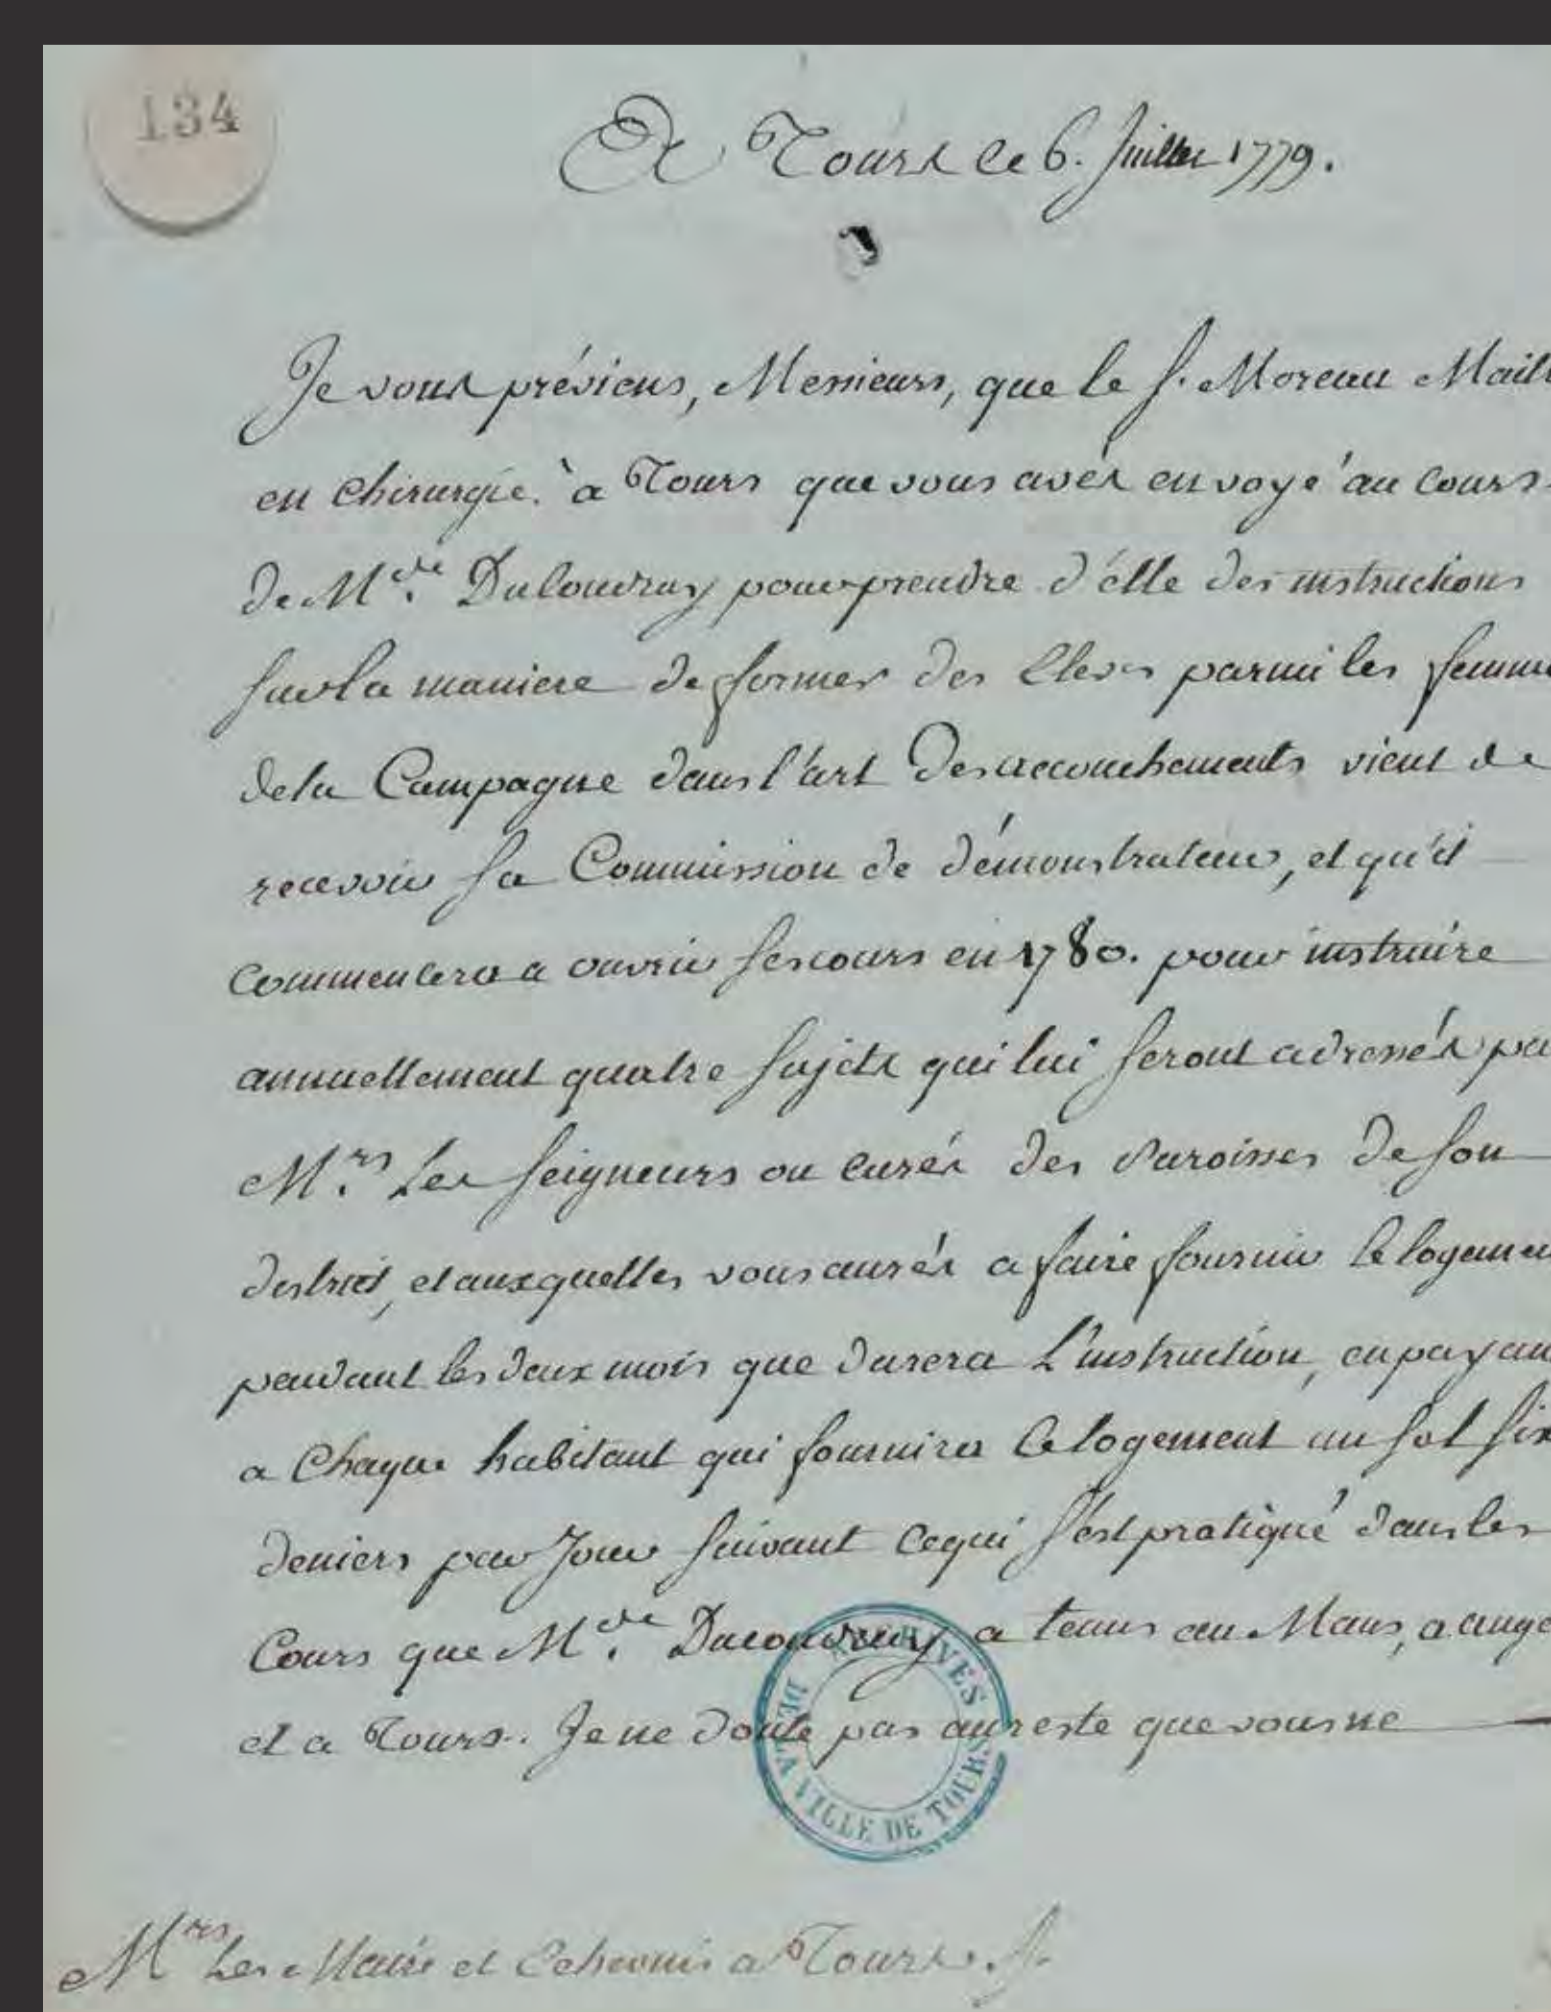 134
A Tours le 6. Juillet 1779.
Je vous préviens, Messieurs, que le S. Moreau Maitr
en chirurgie à Tours que vous avés envoyé au Cours
de M.de Ducoudray pour prendre d'elle des instructions
sur la maniere de former des Eleves parmi les femme
de la Campagne dans l'art des accouchements vient de
recevoir sa Commission de démonstrateur, et qu'il
commencera a ouvrir ses cours en 1780. pour instruire
annuellement quatre sujets qui lui seront adressés pa
M.rs Les seigneurs ou curés des Paroisses de son
district, et auxquelles vous aurés a faire fournir le logemen
pendant les deux mois que durera L'instruction, en payan
a Chaque habitant qui fournira le logement un sol six
deniers par Jour suivant ce qui s'est pratiqué dans les
Cours que M.de Ducoudray a tenus au Mans, a ange
et a Tours. Je ne doute pas au reste que vous ne
ARCHIVES
DE LA VILLE DE TOURS
M.rs Les Maire et Echevins a Tours.